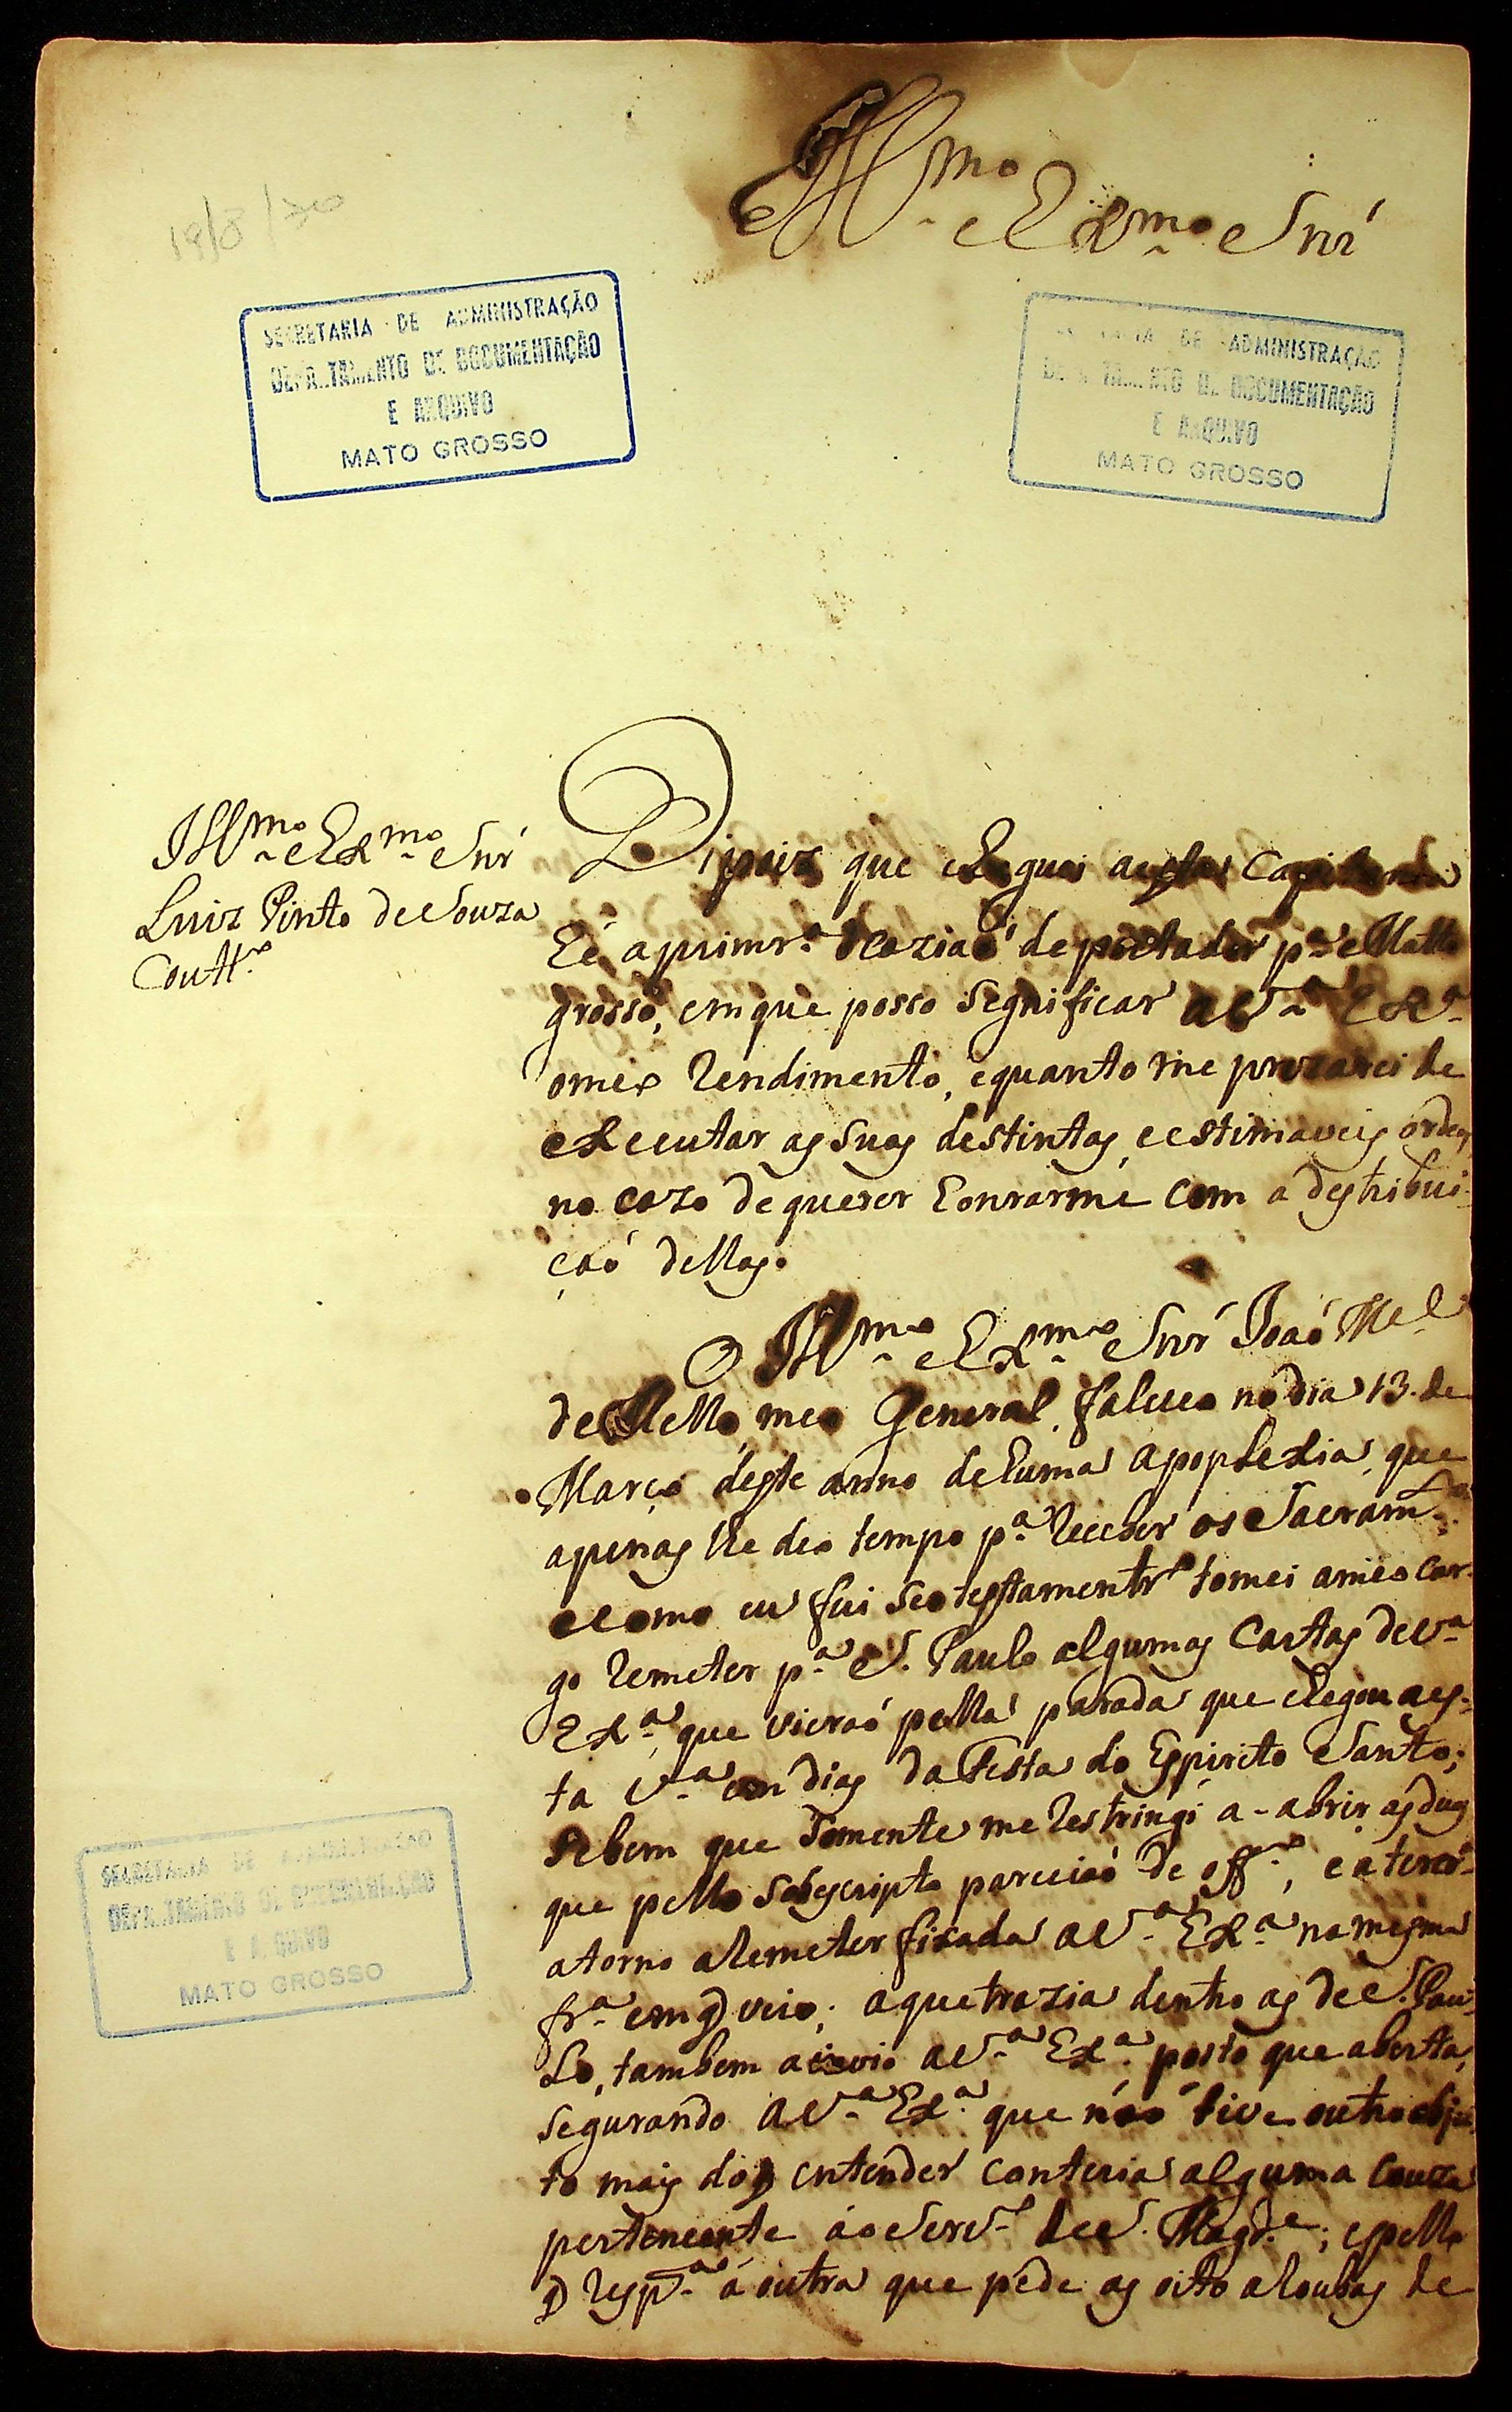 Ill.mo e Ex.mo Snr'
19/8/70
SECRETARIA DE ADMINISTRAÇÃO
DEPARTAMENTO DE DOCUMENTAÇÃO
E ARQUIVO
MATO GROSSO
SECRETARIA DE ADMINISTRAÇÃO
DEPARTAMENTO DE DOCUMENTAÇÃO
E ARQUIVO
MATO GROSSO
Ill.mo e Ex.mo Snr'
Luiz Pinto de Souza
Coutt.o
Dipoiz que cheguei a esta Capitania
hé a primr.a ocaziaó de portador p.a Matto
grosso, em que posso Segnificar a V.a Ex.a
o meo rendimento, e quanto me prezarei de
executar as suas destintas, e estimaveis ordens,
no cazo de querer honrarme com a destribui-
çaó dellas.
O Ill.mo e Ex.mo Snr' Joaó M.el
de Mello, meo General, faleceo no dia 13. de
Março deste anno de huma apoplexia, que
apenas lhe deo tempo p.a receber os Sacram.tos
e como eu fui seo testamentr.o tomei a meo car-
go remeter p.a S. Paulo algumas Cartas de V.a
Ex.a, que vieraó pella parada que chegou a es-
ta V.a em dias da Festa do Espirito Santo;
se bem que somente me restringi a abrir as duas
que pello sobscripto pareciaó de off.o, e a terceir.a
a torno a remeter fixada a V.a Ex.a na mesma
fr.a em q veio; a que trazia dentro as de S. Pau-
lo, tambem a envio a V.a Ex.a posto que aberta,
segurando a V.a Ex.a que naó tive outro obje-
to mais do q entender conteria alguma couza
pertencente ao Serv.o de S. Mag.de; e pello
q resp.a á outra que péde as oito aroubas de
SECRETARIA DE ADMINISTRAÇÃO
DEPARTAMENTO DE DOCUMENTAÇÃO
E ARQUIVO
MATO GROSSO